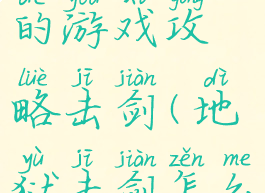 de yóu xì gōng
的游戏攻
lüè jī jiàn dì
略击剑(地
yù jī jiàn zěn me
狱击剑怎么